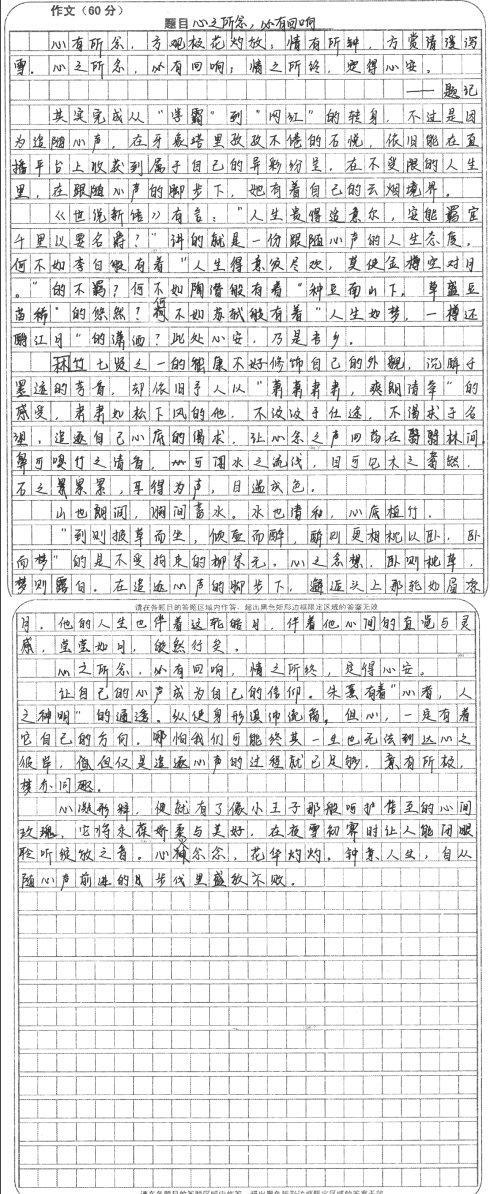 作文（60分）
题目 心之所念，必有回响
心有所念，方观枝花灼放；情有所钟，方赏清漫泻
雪。心之所念，必有回响；情之所终，定得心安。
——题记
其实完成从“学霸”到“网红”的转身，不过是因
为追随心声，在牙象塔里孜孜不倦的石悦，依旧能在直
播平台上收获到属于自己的异彩纷呈，在不受限的人生
里，在跟随心声的脚步下，她有着自己的云烟境界。
《世说新语》有言：“人生贵得适意尔，安能羁宦
千里以要名爵？”讲的就是一份跟随心声的人生态度，
何不如李白般有着“人生得意须尽欢，莫使金樽空对月
。”的不羁？何不如陶潜般有着“种豆南山下，草盛豆
苗稀”的悠然？何不如苏轼般有着“人生如梦，一樽还
酹江月”的潇洒？此处心安，乃是吾乡。
竹七贤之一的嵇康不好修饰自己的外貌，沉醉于
墨迹的芳香，却依旧予人以“萧萧肃肃，爽朗清举”的
感受，肃肃如松下风的他，不汲汲于仕途，不渴求于名
追逐自己心底的渴求，让心念之声回荡在翳翳林间，
鼻可嗅竹之清香，可闻水之流伐，目可见木之蓊然，
石之累累，耳得为声，目遇成色。
山也朗润，涧间蓄水。水也清和，心底植竹。
“到则披草而坐，倾壶而醉，醉则更相枕以卧，卧
而梦”的是不受拘束的柳宗元。心之念想，卧则枕草，
梦则露白。在追逐心声的脚步下，邂逅头上那轮如眉凉
请在各题目的答题区域内作答，超出黑色矩形边框限定区域的答案无效
月，他的人生也伴着这轮皓月，伴着他心间的直觉与灵
感，莹莹如月，皎然行矣。
心之所念，必有回响，情之所终，定得心安。
让自己的心声成为自己的信仰。朱熹有着“心者，人
之神明”的通透。纵使身形漂沛流离。但心，一定有着
它自己的方向。哪怕我们可能终其一生也无法到达心之
彼岸，但仅仅是追逐心声的过程就已足够，意有所极，
梦亦同趣。
心凝形释，便就有了像小王子那般呵护备至的心间
玫瑰，它将永葆娇柔与美好，在夜雪初霁时让人能闭眼
聆听绽放之音。心神念念，花华灼灼。钟意人生，自从
随心声前进的步伐里盛放不败。
请在各题目的答题区域内作答，超出黑色矩形边框限定区域的答案无效